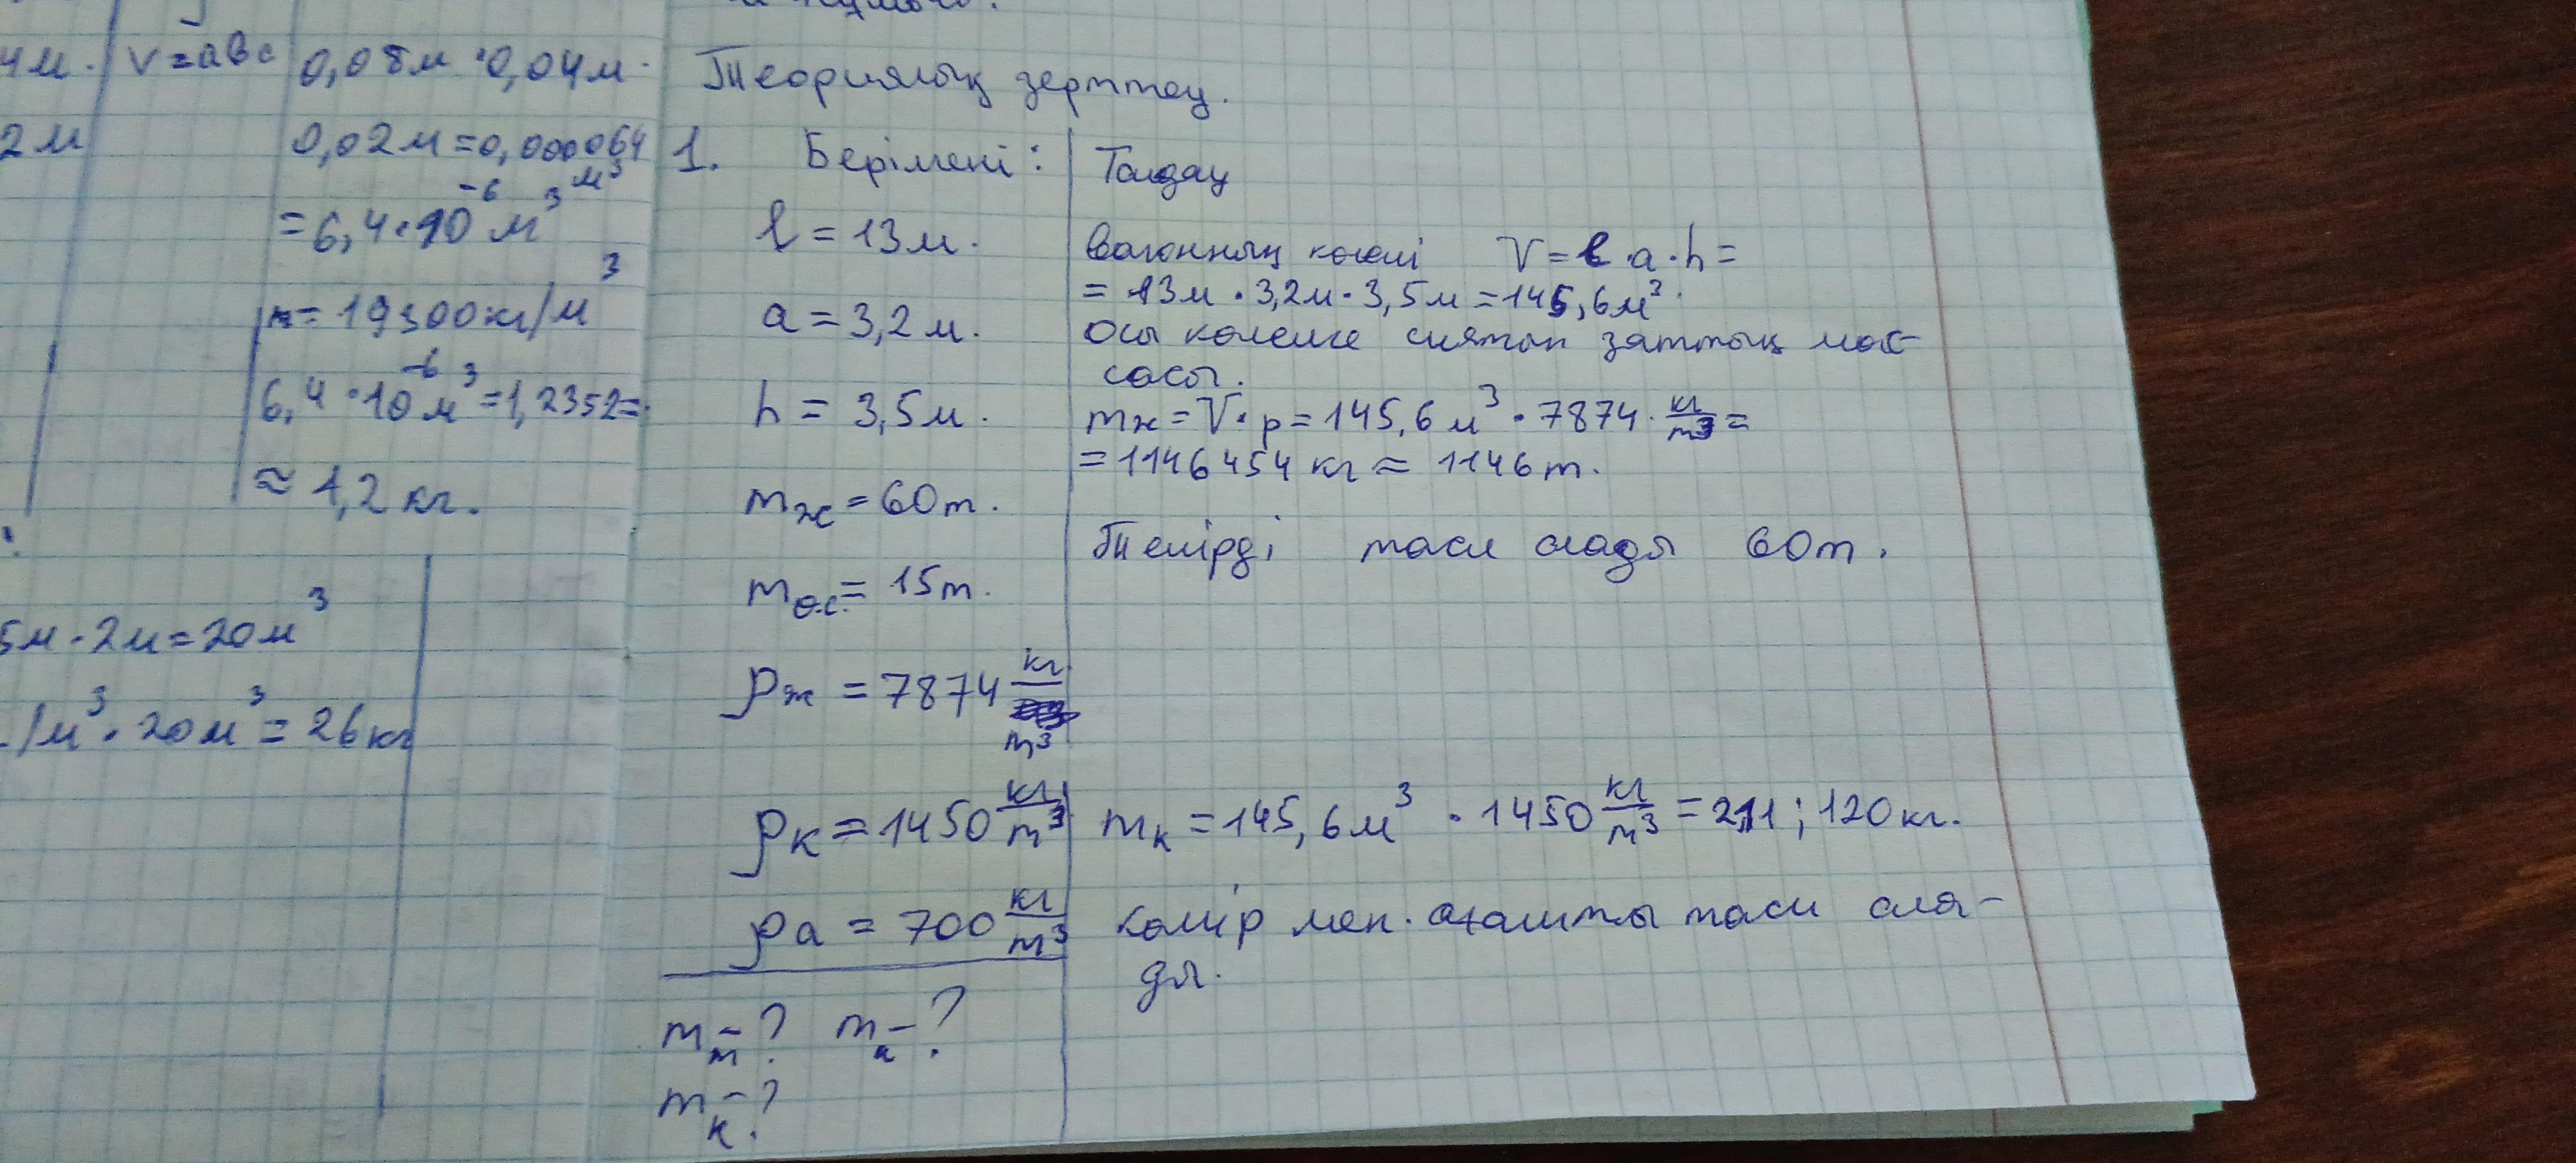 4м. V=abc 0,08м·0,04м·
2м 0,02м=0,000064 м³
=6,4·10⁻⁶м³
m=19300кг/м³
6,4·10⁻⁶м³=1,2352=
≈1,2кг.
5м·2м=20м³
/м³·20м³=26кг
Теориялық зерттеу.
1. Берілгені:
l=13м.
a=3,2м.
h=3,5м.
mж=60т.
mө.с.=15т.
ρж=7874 кг/m³
ρк=1450 кг/m³
ρа=700 кг/m³
mт-? mа-?
mк-?
Талдау
Вагонның көлемі V=l·a·h=
=13м·3,2м·3,5м=145,6м³.
Осы көлемге сиятын заттың мас-
сасы.
mж=V·ρ=145,6м³·7874·кг/m³=
=1146454кг≈1146т.
Темірді таси алады 60т.
mк=145,6м³·1450 кг/m³=211;120кг.
Көмір мен. ағашты таси ала-
ды.